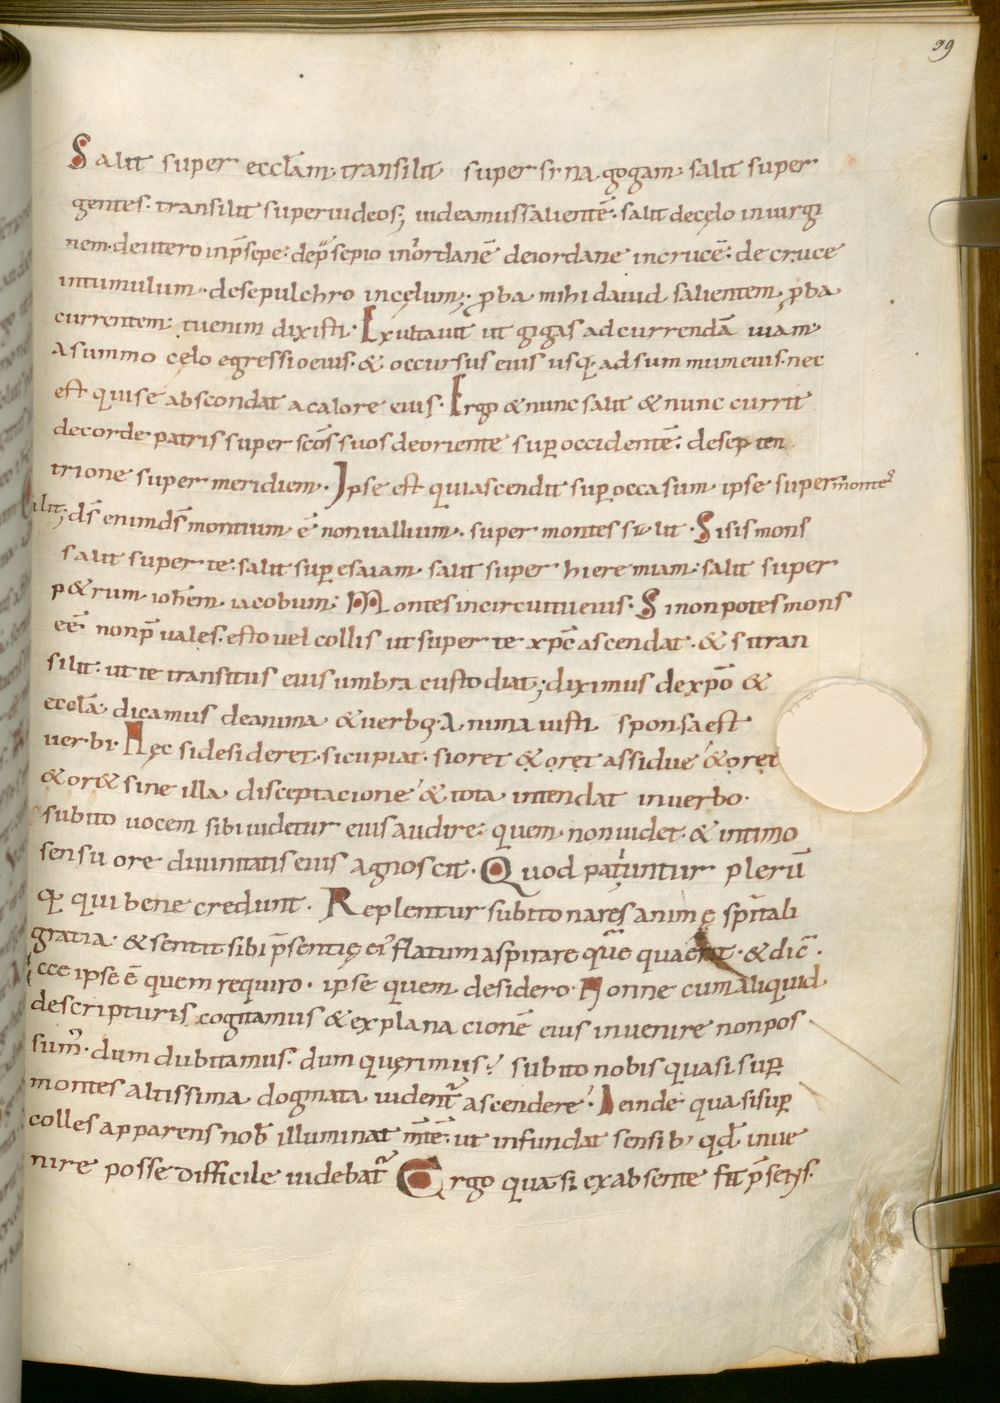 39
Salit super eccl̄am· transilit super sinagogam· salit super
gentes· transilit super iudeos; uideamus salientē· salit decęlo in uirgi
nem· deutero in p̄sepe· de p̄sepio in iordanē de iordane in crucē· de cruce
in tumulum· de sepulchro in cęlum; ꝓba mihi dauid salientem ꝓba
currentem· tu enim dixisti· Exultauit ut gigas ad currendā uiam·
A summo cęlo egressio eius· & occursus eius usq; ad summum eius· nec
est qui se abscondat a calore eius· Ergo & nunc salit & nunc currit
de corde patris super sc̄os suos de oriente sup̄ occidentē· de septen
trione super meridiem· Ipse est qui ascendit sup̄ occasum ipse super montes
ilit; d̄s enim d̄s montium ē non uallium· super montes salit· Si sis mons
salit super te· salit sup̄ esaiam salit super hieremiam· salit super
p&rum ioh̄em iacobum; Montes in circuitu eius· Si non potes mons
eē· non p̄uales· esto uel collis ut super te xp̄c ascendat· & si tran
silit· ut te transitus eius umbra custodiat; diximus de xp̄o &
eccl̄a dicamus de anima & uerbo· Anima iusti sponsa est
uerbi· Hęc si desideret· si cupiat· si oret & oret assidue & oret
& or& sine illa disceptacione & tota intendat in uerbo·
subito uocem sibi uidetur eius audire· quem non uidet· & intimo
sensu ore diuinitatis eius agnoscit· Quod patiuntur plerū
q; qui bene credunt· Replentur subito nares animę sp̄itali
gratia· & sentit sibi p̄sentię ei' flatum aspirare quē quaerit· & dic̄·
Ecce ipse ē quem requiro· ipse quem desidero· Nonne cum aliquid
de scripturis cogitamus & explanacionē eius inuenire non pos
sum'· dum dubitamus· dum quęrimus? subito nobis quasi sup̄
montes altissima dogmata uident̄ ascendere· Deinde quasi sup̄
colles apparens nob̄ illuminat m̄tē· ut infundat sensib; qd̄ inue
nire posse difficile uidebat̄ Ergo quasi ex absente fit p̄sens·